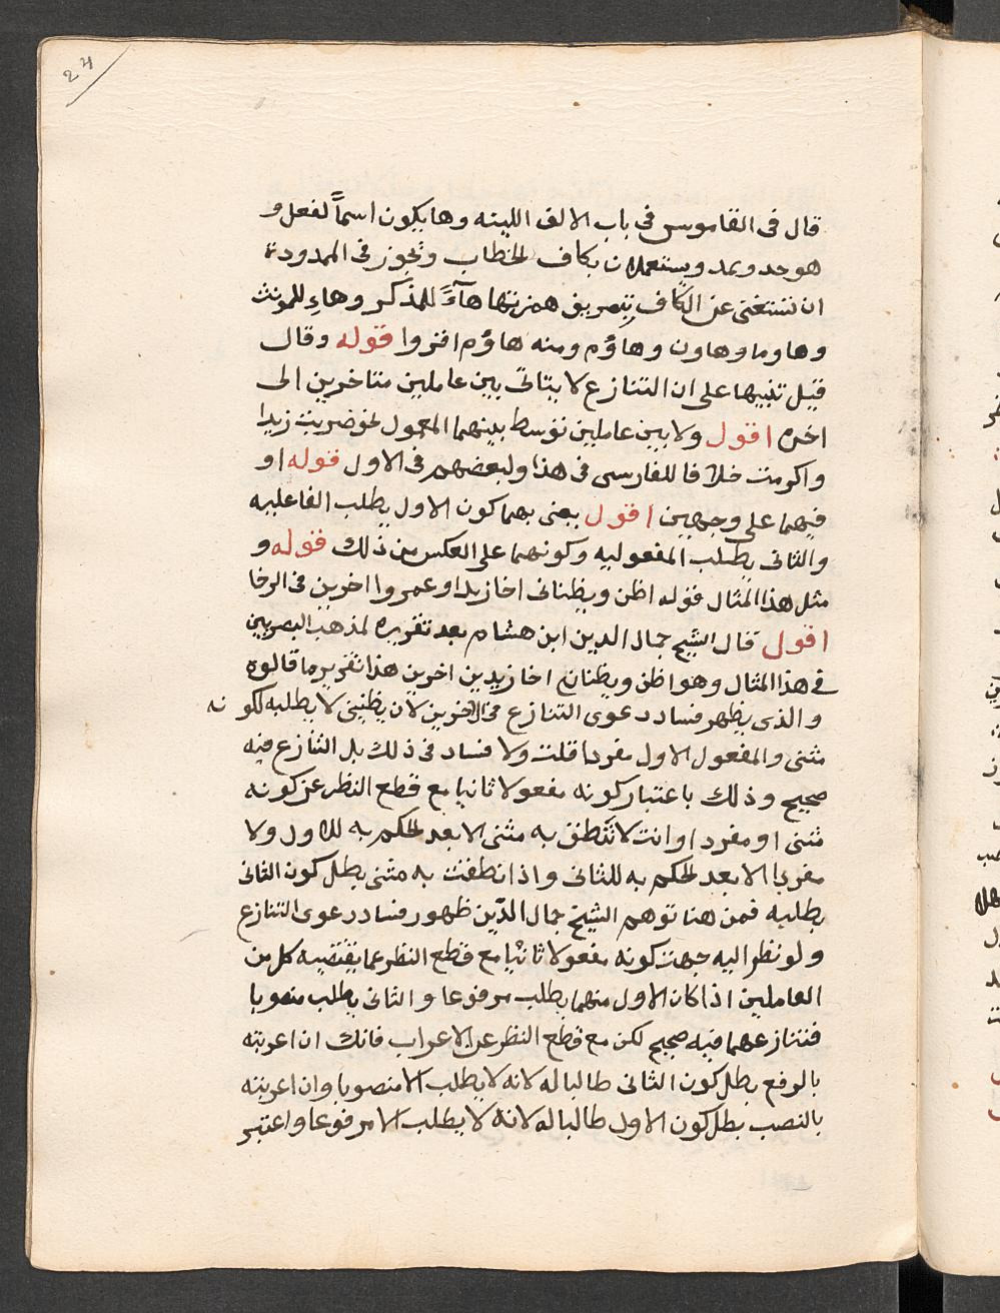 24
قال فى القاموس فى باب الالف اللينه وها يكون اسماً لفعل و
هو حد ويمد ويستعملان بكاف الخطاب وتجوز فى الممدودة
ان تستغنى عن الكاف بتصريف همزتها هاءَ للمذكر وهاءِ للمونث
وهاوما وهاون وهاؤم ومنه هاؤم اقروا قوله وقال
قيل تنبيها على ان التنازع لا يتاتى بين عاملين متاخرين الى
اخره اقول ولا بين عاملين توسط بينهما المعمول نحو ضربت زيدا
واكرمت خلافا للفارسى فى هذا ولبعضهم فى الاول قوله او
فيهما على وجهين اقول يعنى بهما كون الاول يطلب الفاعليه
والثانى يطلب المفعوليه وكونهما على العكس من ذلك قوله و
مثل هذا المثال قوله اظن ويظنانى اخا زيدا وعمروا اخوين فى الرخا
اقول قال الشيخ جمال الدين ابن هشام بعد تقريره لمذهب البصريين
فى هذا المثال وهو اظن ويظنانى اخا زيدين اخوين هذا تقرير ما قالوه
والذى يظهر فساد دعوى التنازع فى الاخوين لان يظنينى لا يطلبه لكونه
مثنى والمفعول الاول مفردا قلت ولا فساد فى ذلك بل التنازع فيه
صحيح وذلك باعتبار كونه مفعولا ثانيا مع قطع النظر عن كونه
مثنى او مفردا وانت لا تنطق به مثنى الا بعد الحكم به للاول ولا
مفردا الا بعد الحكم به للثانى واذا نطقت به مثنى بطل كون الثانى
يطلبه فمن هنا توهم الشيخ جمال الدّين ظهور فساد دعوى التنازع
ولو نظر اليه جهت كونه مفعولا ثانيا مع قطع النظر عما يقتضيه كل من
العاملين اذا كان الاول منهما يطلب مرفوعا والثانى يطلب منصوبا
فتنازعهما فيه صحيح لكن مع قطع النظر عن الاعراب فانك ان اعربته
بالرفع بطل كون الثانى طالبا له لانه لا يطلب الا منصوبا وان اعربته
بالنصب بطل كون الاول طالبا له لانه لا يطلب الا مرفوعا واعتبر